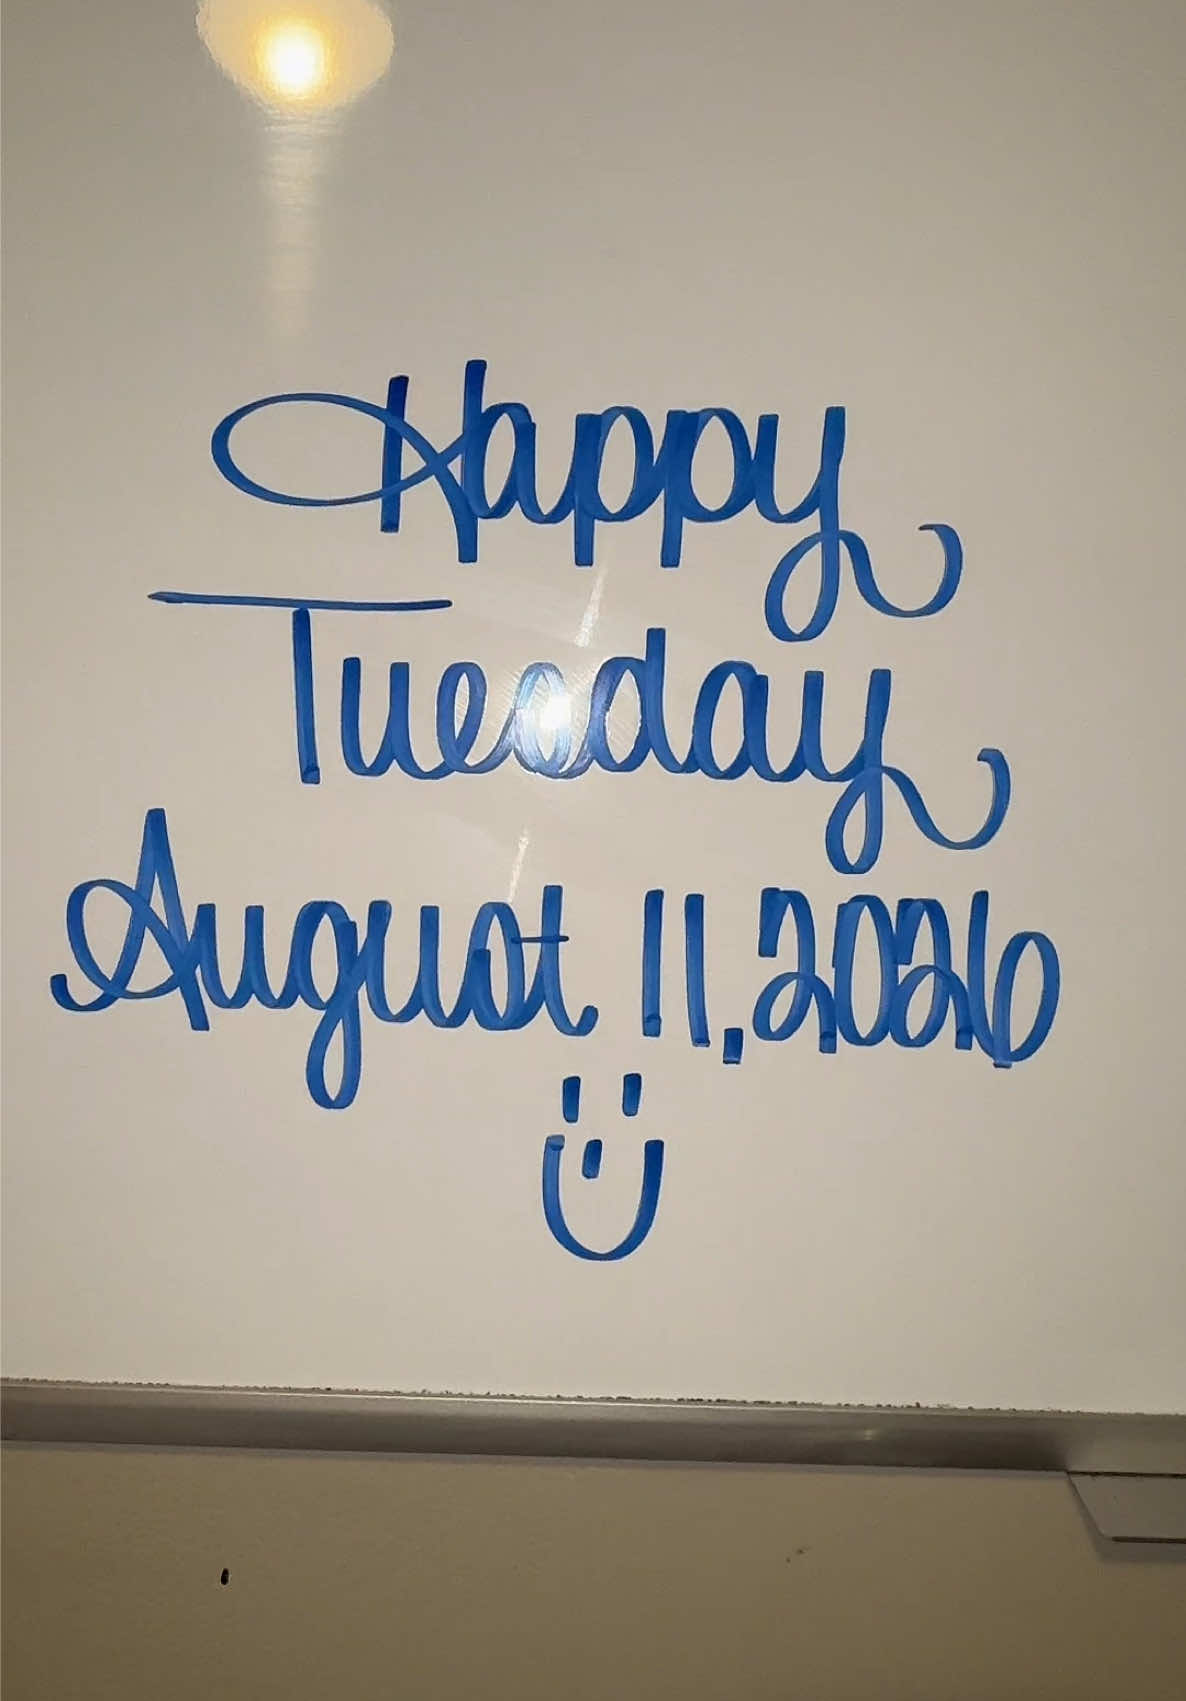 Happy
Tuesday
August 11, 2026